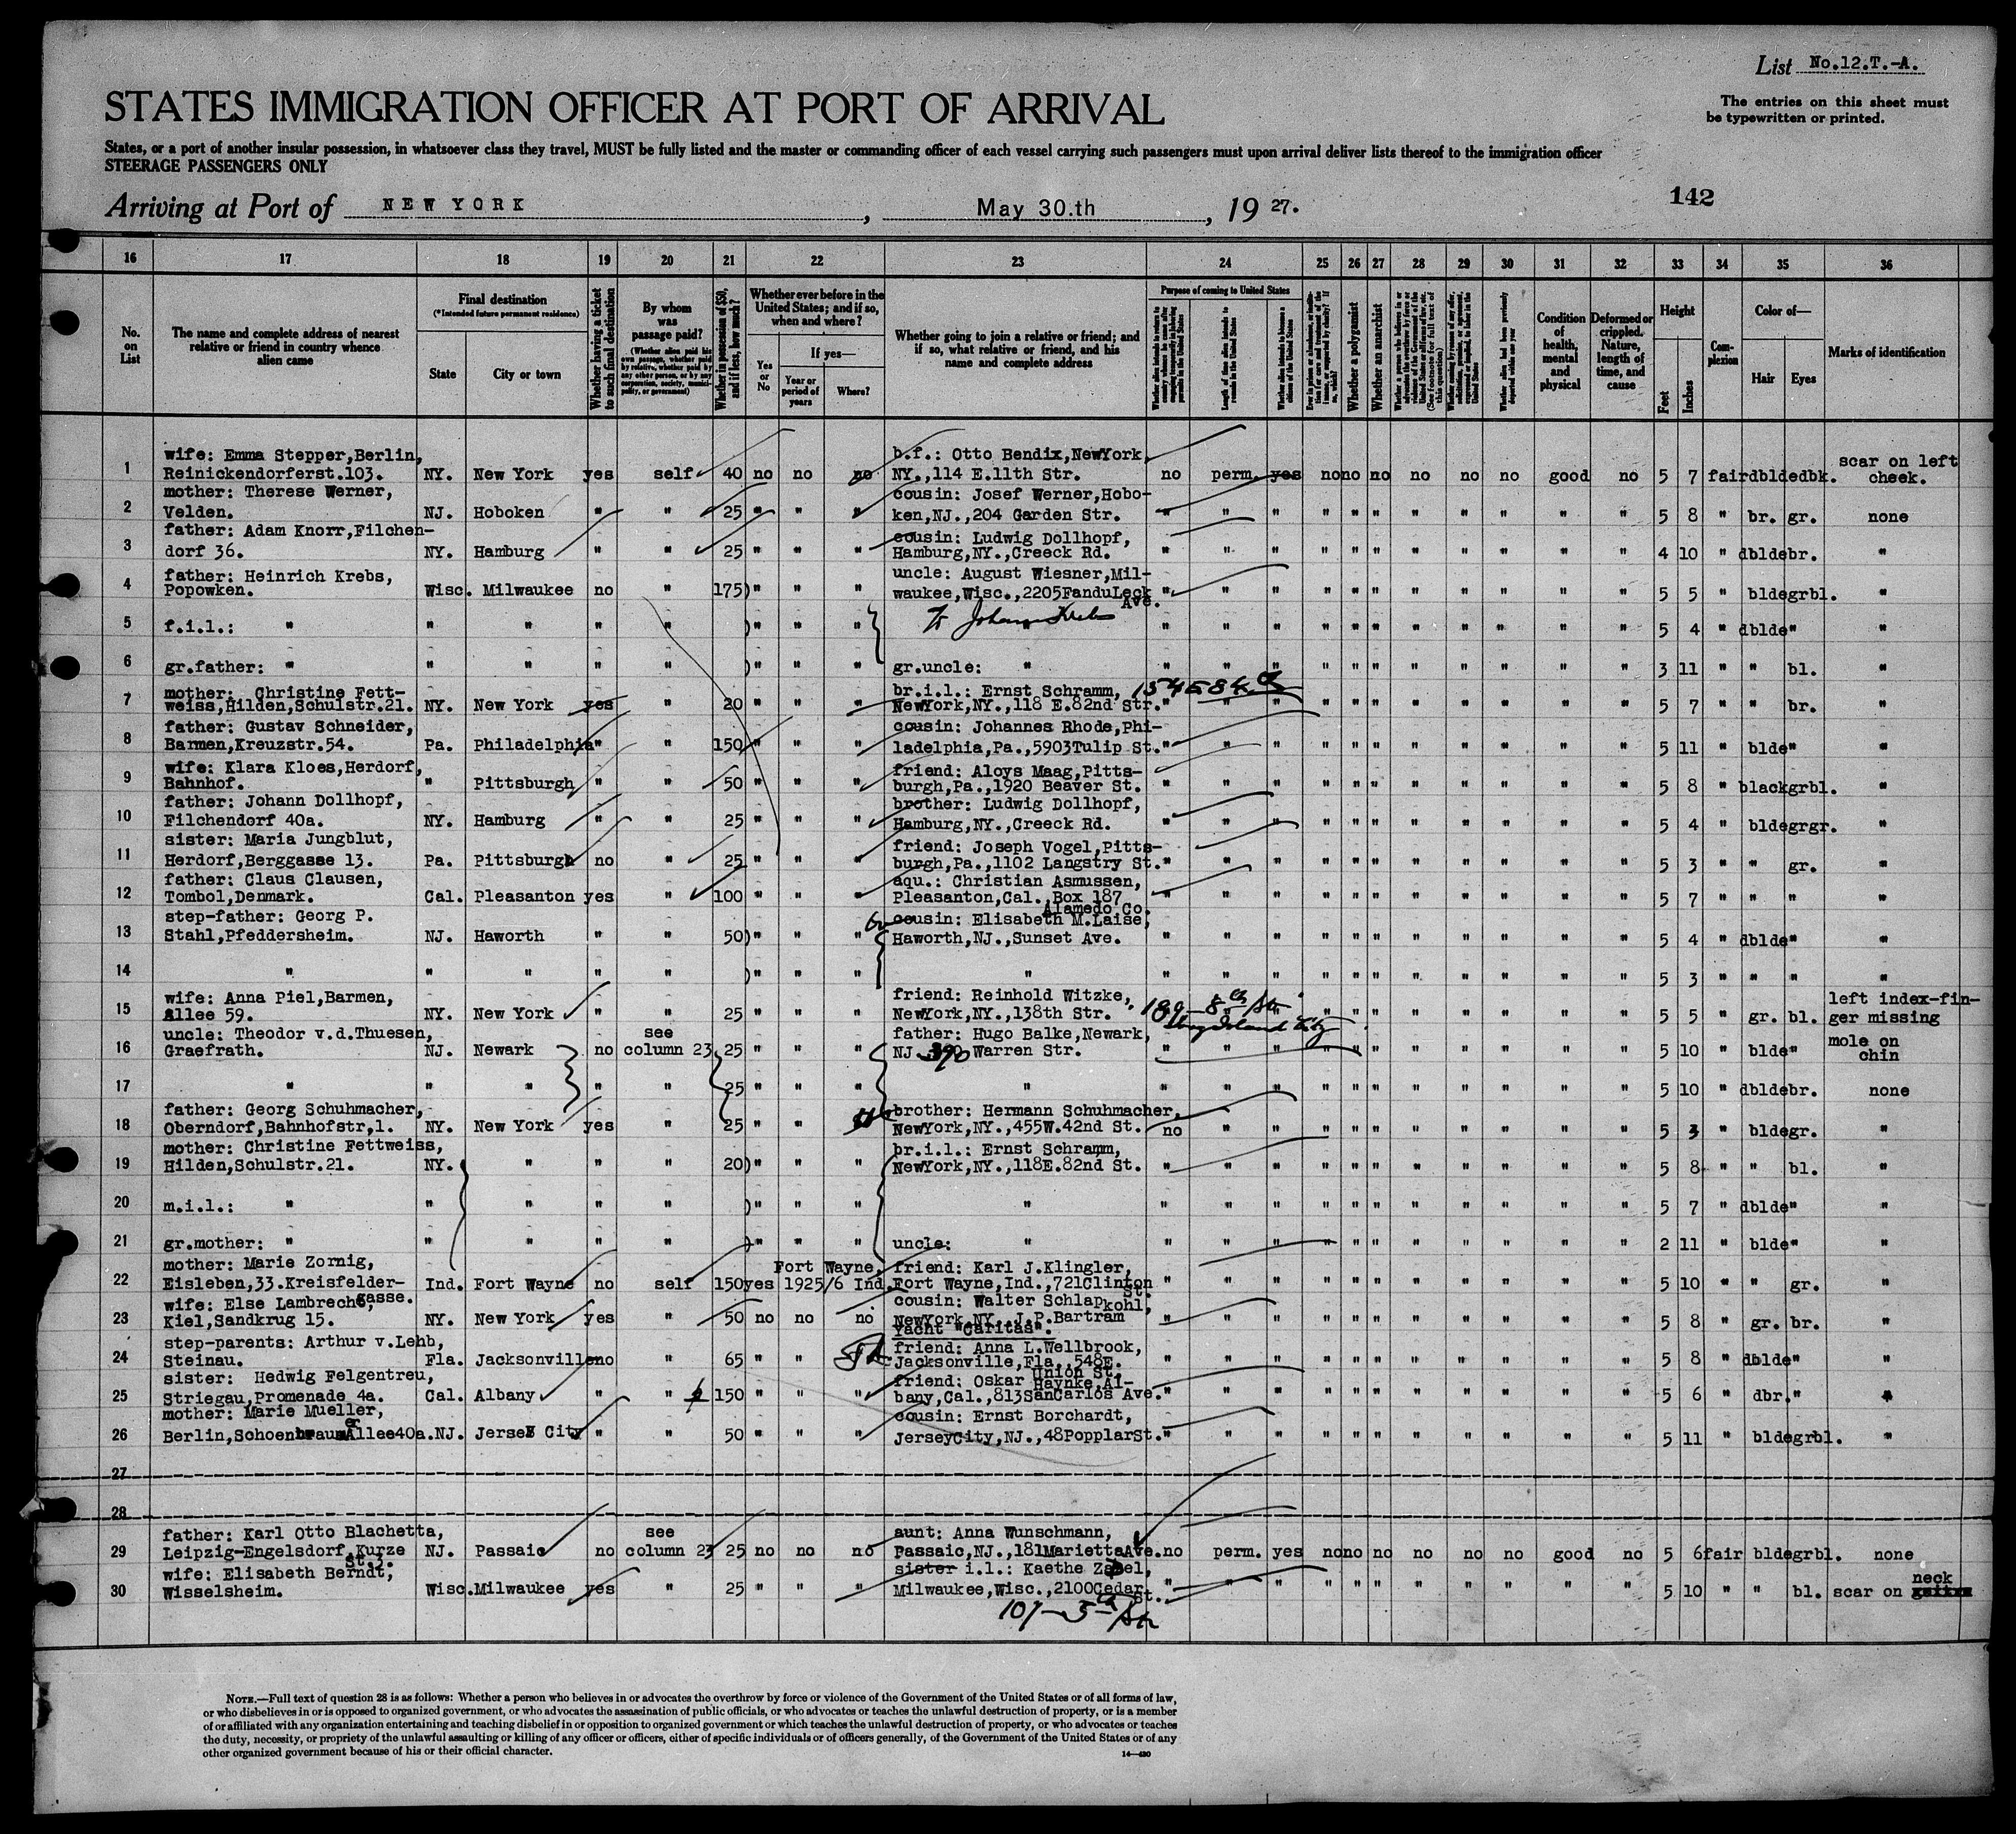 List No.12.T.-A.
The entries on this sheet must
be typewritten or printed.
STATES IMMIGRATION OFFICER AT PORT OF ARRIVAL
States, or a port of another insular possession, in whatsoever class they travel, MUST be fully listed and the master or commanding officer of each vessel carrying such passengers must upon arrival deliver lists thereof to the immigration officer
STEERAGE PASSENGERS ONLY
Arriving at Port of NEW YORK, May 30.th, 19 27.
142
16 17 18 19 20 21 22 23 24 25 26 27 28 29 30 31 32 33 34 35 36
No. on List
The name and complete address of nearest relative or friend in country whence alien came
Final destination
(*Intended future permanent residence)
State
City or town
Whether having a ticket to such final destination
By whom was passage paid?
(Whether alien paid his own passage, whether paid by relative, whether paid by any other person, or by any corporation, society, municipality, or government)
Whether in possession of $50, and if less, how much?
Whether ever before in the United States; and if so, when and where?
Yes or No
If yes—
Year or period of years
Where?
Whether going to join a relative or friend; and if so, what relative or friend, and his name and complete address
Purpose of coming to United States
Length of time alien intends to remain in the United States
Whether alien intends to become a citizen of the United States
Whether a polygamist
Whether an anarchist
Whether alien had been previously deported within one year
Condition of health, mental and physical
Deformed or crippled. Nature, length of time, and cause
Height
Feet
Inches
Complexion
Color of—
Hair
Eyes
Marks of identification
1 wife: Emma Stepper,Berlin, Reinickendorferst.103. NY. New York yes self 40 no no no b.f.: Otto Bendix,NewYork, NY.,114 E.11th Str. no perm. yes no no no no no no good no 5 7 fair dblde dbk. scar on left cheek.
2 mother: Therese Werner, Velden. NJ. Hoboken " " 25 " " " cousin: Josef Werner,Hobo- ken,NJ.,204 Garden Str. " " " " " " " " " " " 5 8 " br. gr. none
3 father: Adam Knorr,Filchen- dorf 36. NY. Hamburg " " 25 " " " cousin: Ludwig Dollhopf, Hamburg,NY.,Creeck Rd. " " " " " " " " " " " 4 10 " dblde br. "
4 father: Heinrich Krebs, Popowken. Wisc. Milwaukee no " 175) " " " uncle: August Wiesner,Mil- waukee,Wisc.,2205FanduLeck Ave. " " " " " " " " " " " 5 5 " blde grbl. "
5 f.i.l.: " " " " " ) " " " Johann Krebs " " " " " " " " " " " 5 4 " dblde " "
6 gr.father: " " " " " ) " " " gr.uncle: " " " " " " " " " " " " 3 11 " " bl. "
7 mother: Christine Fett- weiss,Hilden,Schulstr.21. NY. New York yes " 20 " " " br.i.l.: Ernst Schramm, NewYork,NY.,118 E.82nd Str. 154 E 84 " " " " " " " " " " " 5 7 " " br. "
8 father: Gustav Schneider, Barmen,Kreuzstr.54. Pa. Philadelphia " " 150 " " " cousin: Johannes Rhode,Phi- ladelphia,Pa.,5903Tulip St. " " " " " " " " " " " 5 11 " blde " "
9 wife: Klara Kloes,Herdorf, Bahnhof. " Pittsburgh " " 50 " " " friend: Aloys Maag,Pitts- burgh,Pa.,1920 Beaver St. " " " " " " " " " " " 5 8 " black grbl. "
10 father: Johann Dollhopf, Filchendorf 40a. NY. Hamburg " " 25 " " " brother: Ludwig Dollhopf, Hamburg,NY.,Creeck Rd. " " " " " " " " " " " 5 4 " blde grgr. "
11 sister: Maria Jungblut, Herdorf,Berggasse 13. Pa. Pittsburgh no " 25 " " " friend: Joseph Vogel,Pitts- burgh,Pa.,1102 Langstry St. " " " " " " " " " " " 5 3 " " gr. "
12 father: Claus Clausen, Tombol,Denmark. Cal. Pleasanton yes " 100 " " " aqu.: Christian Asmussen, Pleasanton,Cal.,Box 187 Alamedo Co. " " " " " " " " " " " 5 7 " " " "
13 step-father: Georg P. Stahl,Pfeddersheim. NJ. Haworth " " 50) " " " cousin: Elisabeth M.Laise, Haworth,NJ.,Sunset Ave. " " " " " " " " " " " 5 4 " dblde " "
14 " " " " " ) " " " " " " " " " " " " " " " 5 3 " " " "
15 wife: Anna Piel,Barmen, Allee 59. NY. New York " " 25 " " " friend: Reinhold Witzke, NewYork,NY.,138th Str. 189 - 8th Str Long Island City " " " " " " " " " 5 5 " gr. bl. left index-fin- ger missing
16 uncle: Theodor v.d.Thuesen, Graefrath. NJ. Newark no see column 23 25 " " " father: Hugo Balke,Newark, NJ. 390 Warren Str. " " " " " " " " " " " 5 10 " blde " mole on chin
17 " " " " " 25 " " " " " " " " " " " " " " " 5 10 " dblde br. none
18 father: Georg Schuhmacher, Oberndorf,Bahnhofstr,1. NY. New York yes " 25 " " " brother: Hermann Schuhmacher, NewYork,NY.,455W.42nd St. no " " " " " " " " " " 5 3 " blde gr. "
19 mother: Christine Fettweiss, Hilden,Schulstr.21. NY. " " " 20) " " " br.i.l.: Ernst Schramm, NewYork,NY.,118E.82nd St. " " " " " " " " " " " 5 8 " " bl. "
20 m.i.l.: " " " " " ) " " " " " " " " " " " " " " " 5 7 " dblde " "
21 gr.mother: " " " " " ) " " " uncle: " " " " " " " " " " " " 2 11 " blde " "
22 mother: Marie Zornig, Eisleben,33.Kreisfelder- gasse. Ind. Fort Wayne no self 150 yes 1925/6 Fort Wayne, Ind. friend: Karl J.Klingler, Fort Wayne,Ind.,721Clinton St. " " " " " " " " " " " 5 10 " " gr. "
23 wife: Else Lambrecht, Kiel,Sandkrug 15. NY. New York yes " 50 no no no cousin: Walter Schlap kohl, NewYork,NY.,J.P.Bartram Yacht "Caritas". " " " " " " " " " " " 5 8 " gr. br. "
24 step-parents: Arthur v.Lehb, Steinau. Fla. Jacksonville no " 65 " " " friend: Anna L.Wellbrook, Jacksonville,Fla.,548E. Union St. " " " " " " " " " " " 5 8 " dblde " "
25 sister: Hedwig Felgentreu, Striegau,Promenade 4a. Cal. Albany " " 150 " " " friend: Oskar Haynke,Al- bany,Cal.,813SanCarlos Ave. " " " " " " " " " " " 5 6 " dbr. " "
26 mother: Marie Mueller, Berlin,SchoenbraumerAllee40a. NJ. Jersey City " " 50 " " " cousin: Ernst Borchardt, JerseyCity,NJ.,48PopplarSt. " " " " " " " " " " " 5 11 " blde grbl. "
27
28
29 father: Karl Otto Blachetta, Leipzig-Engelsdorf,Kurze St.3. NJ. Passaic no see column 23 25 no no no aunt: Anna Wunschmann, Passaic,NJ.,181MariettaAve. no perm. yes no no no no no no good no 5 6 fair blde grbl. none
30 wife: Elisabeth Berndt, Wisselsheim. Wisc. Milwaukee yes " 25 " " " sister i.l.: Kaethe Zabel, Milwaukee,Wisc.,2100Cedar St. 107-5th Str " " " " " " " " " " " 5 10 " " bl. scar on neck
NOTE.—Full text of question 28 is as follows: Whether a person who believes in or advocates the overthrow by force or violence of the Government of the United States or of all forms of law,
or who disbelieves in or is opposed to organized government, or who advocates the assassination of public officials, or who advocates or teaches the unlawful destruction of property, or is a member
of or affiliated with any organization entertaining and teaching disbelief in or opposition to organized government or which teaches the unlawful destruction of property, or who advocates or teaches
the duty, necessity, or propriety of the unlawful assaulting or killing of any officer or officers, either of specific individuals or of officers generally, of the Government of the United States or of any
other organized government because of his or their official character.
14—430